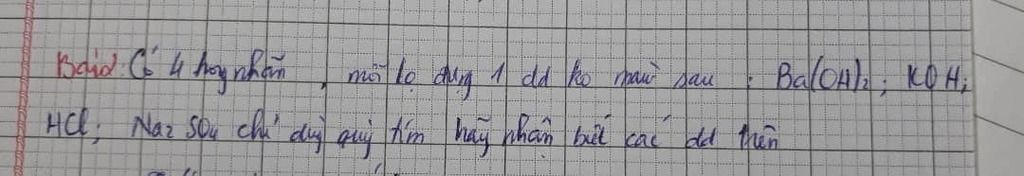 Bài 2: Có 4 lọ ko nhãn, mỗi lọ đựng 1 dd ko màu sau: Ba(OH)2; KOH;
HCl; Na2SO4 chỉ dùng quỳ tím hãy nhận biết các dd trên